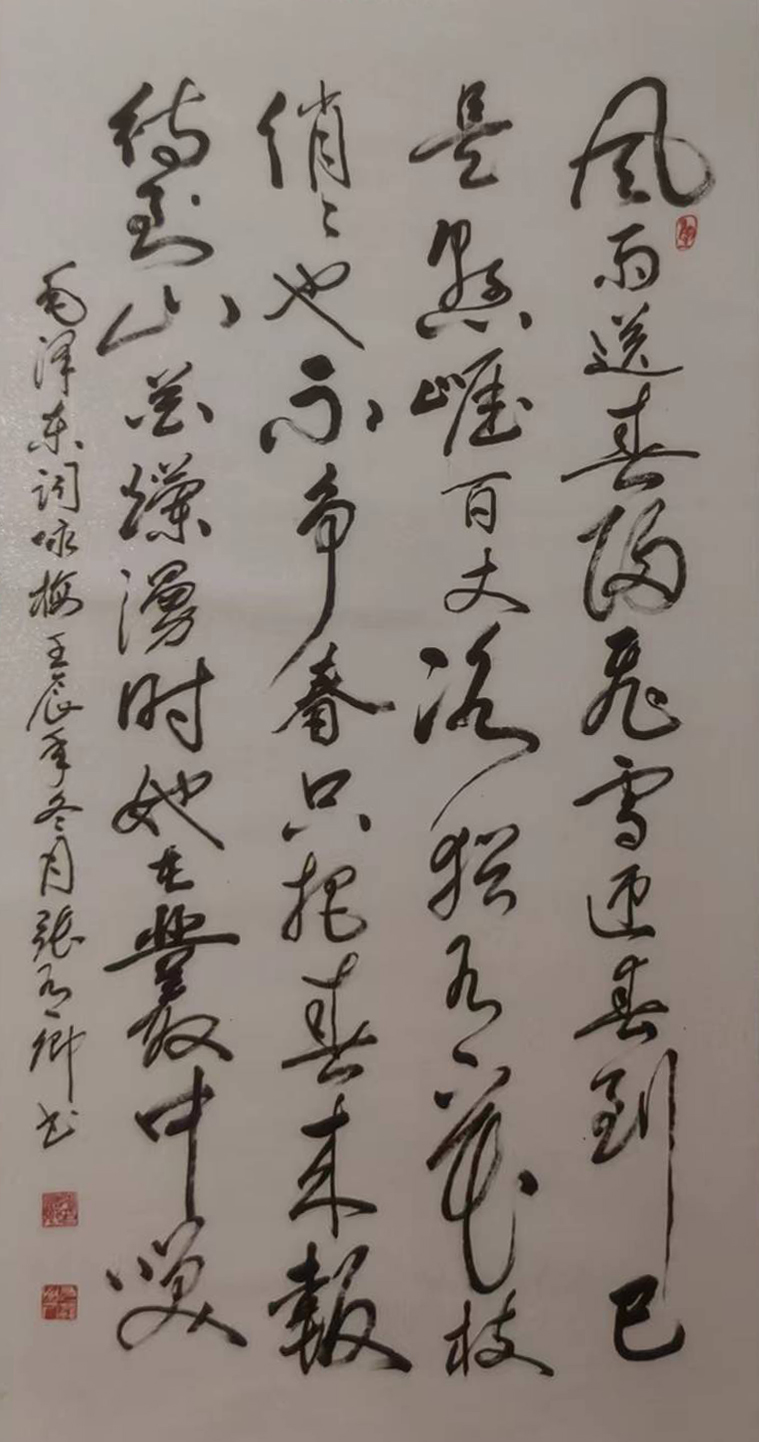 风雨送春归飞雪迎春到已
是懸崖百丈冰猶有花枝
俏〻也不争春只把春来報
待到山花爛漫时她在叢中笑
毛泽东词咏梅壬辰年冬月張有卿书